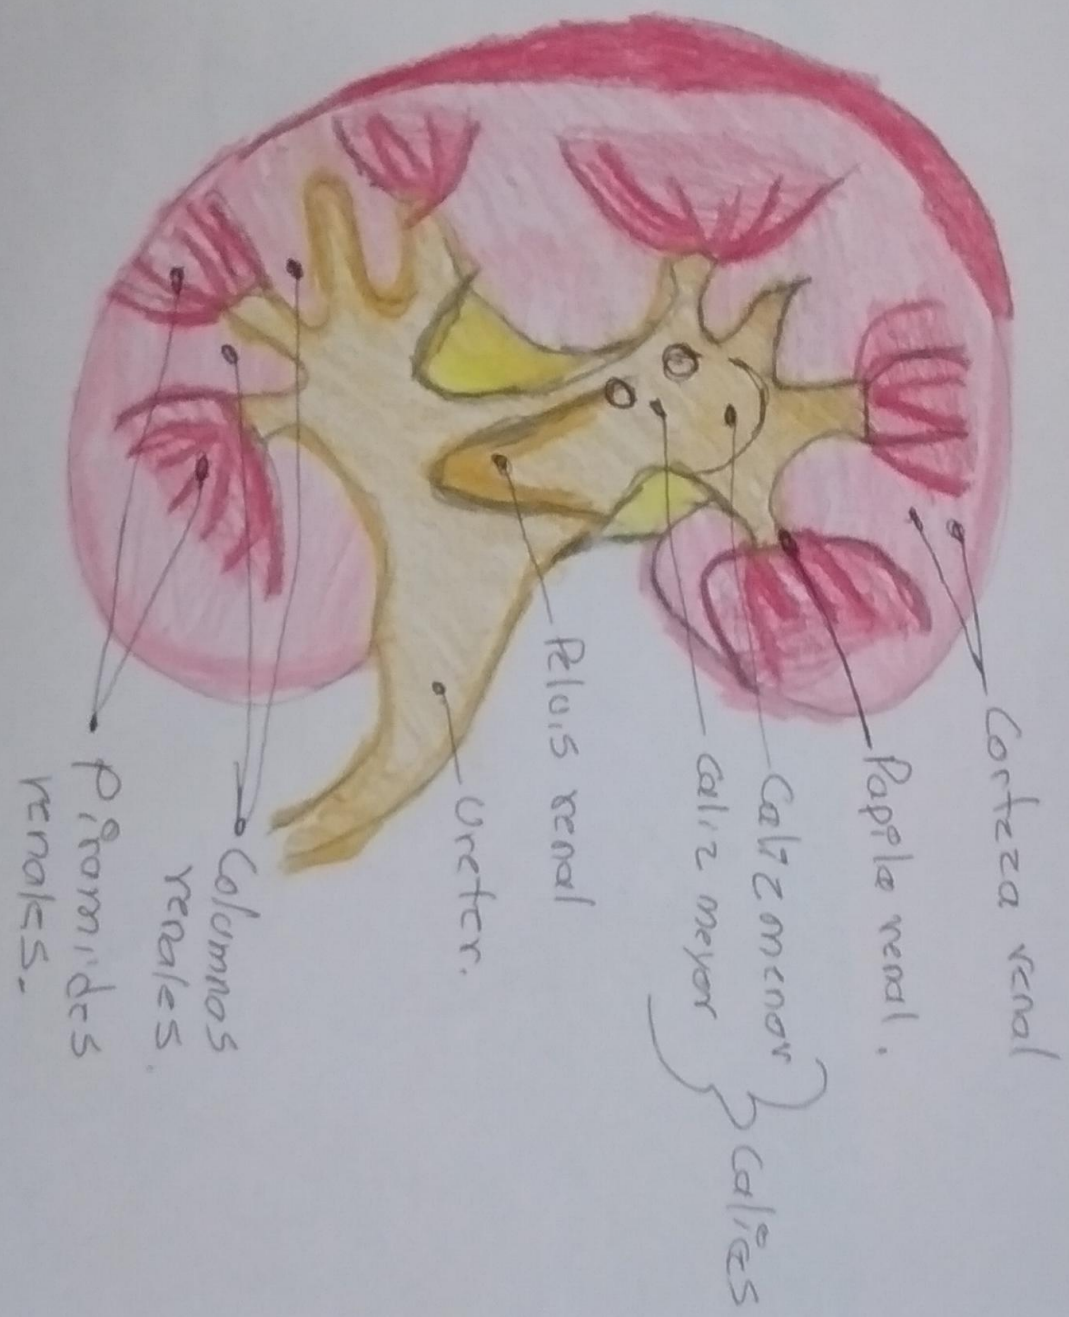 Corteza renal
Papila renal.
Caliz menor
Caliz mayor
Calices
Pelvis renal
Ureter.
Columnas
renales.
Piramides
renales.